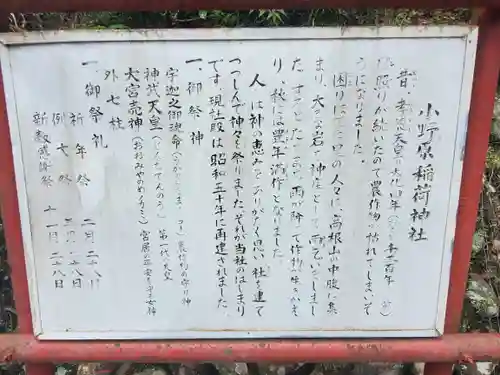 小野原稲荷神社
昔、孝徳天皇の大化
照りが続いたので農作物が枯れてしまいそ
うになりました。
困りはてた里の人々は、高根山の中腹に集
まり、大きな岩を神座として雨乞いをしまし
た。するとたちまち雨が降って作物は生きかえ
り、秋には豊年満作となりました。
人々は神の恵みをありがたく思い、社を建て
つつしんで神々を祭りました。それが当社のはじまり
です。現社殿は昭和五十年に再建されました。
一、御祭神
宇迦之御魂命(うかのみたまのみこと)農作物の守り神
神武天皇(じんむてんのう)第一代の天皇
大宮売神(おおみやのめのかみ)宮居の平安を守る女神
外七柱
一、御祭礼
祈年祭 二月二十八日
例大祭 二十八日
新穀感謝祭 十一月二十八日